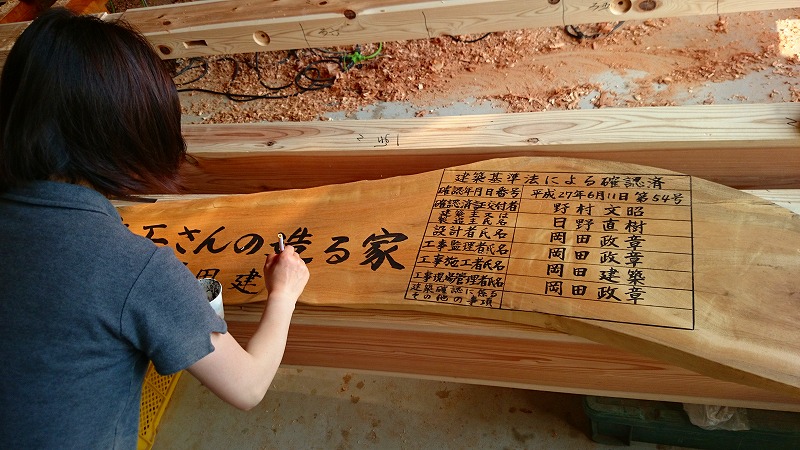 石さんの造る家
田建
建築基準法による確認済
確認年月日番号 平成27年6月11日第54号
確認済証交付者 野村文昭
建築主又は築造主氏名 日野直樹
設計者氏名 岡田政章
工事監理者氏名 岡田政章
工事施工者氏名 岡田建築
工事現場管理者氏名 岡田政章
建築確認に係るその他の事項